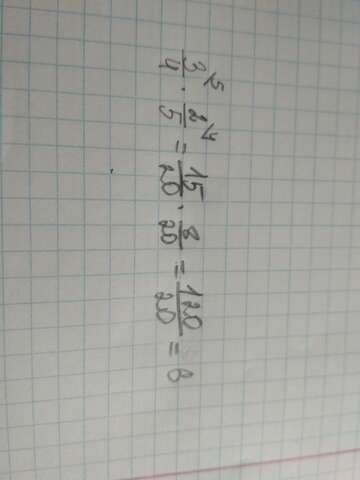 3/4 ⁵ · 2/5 ⁴ = 15/20 · 8/20 = 120/20 = 8